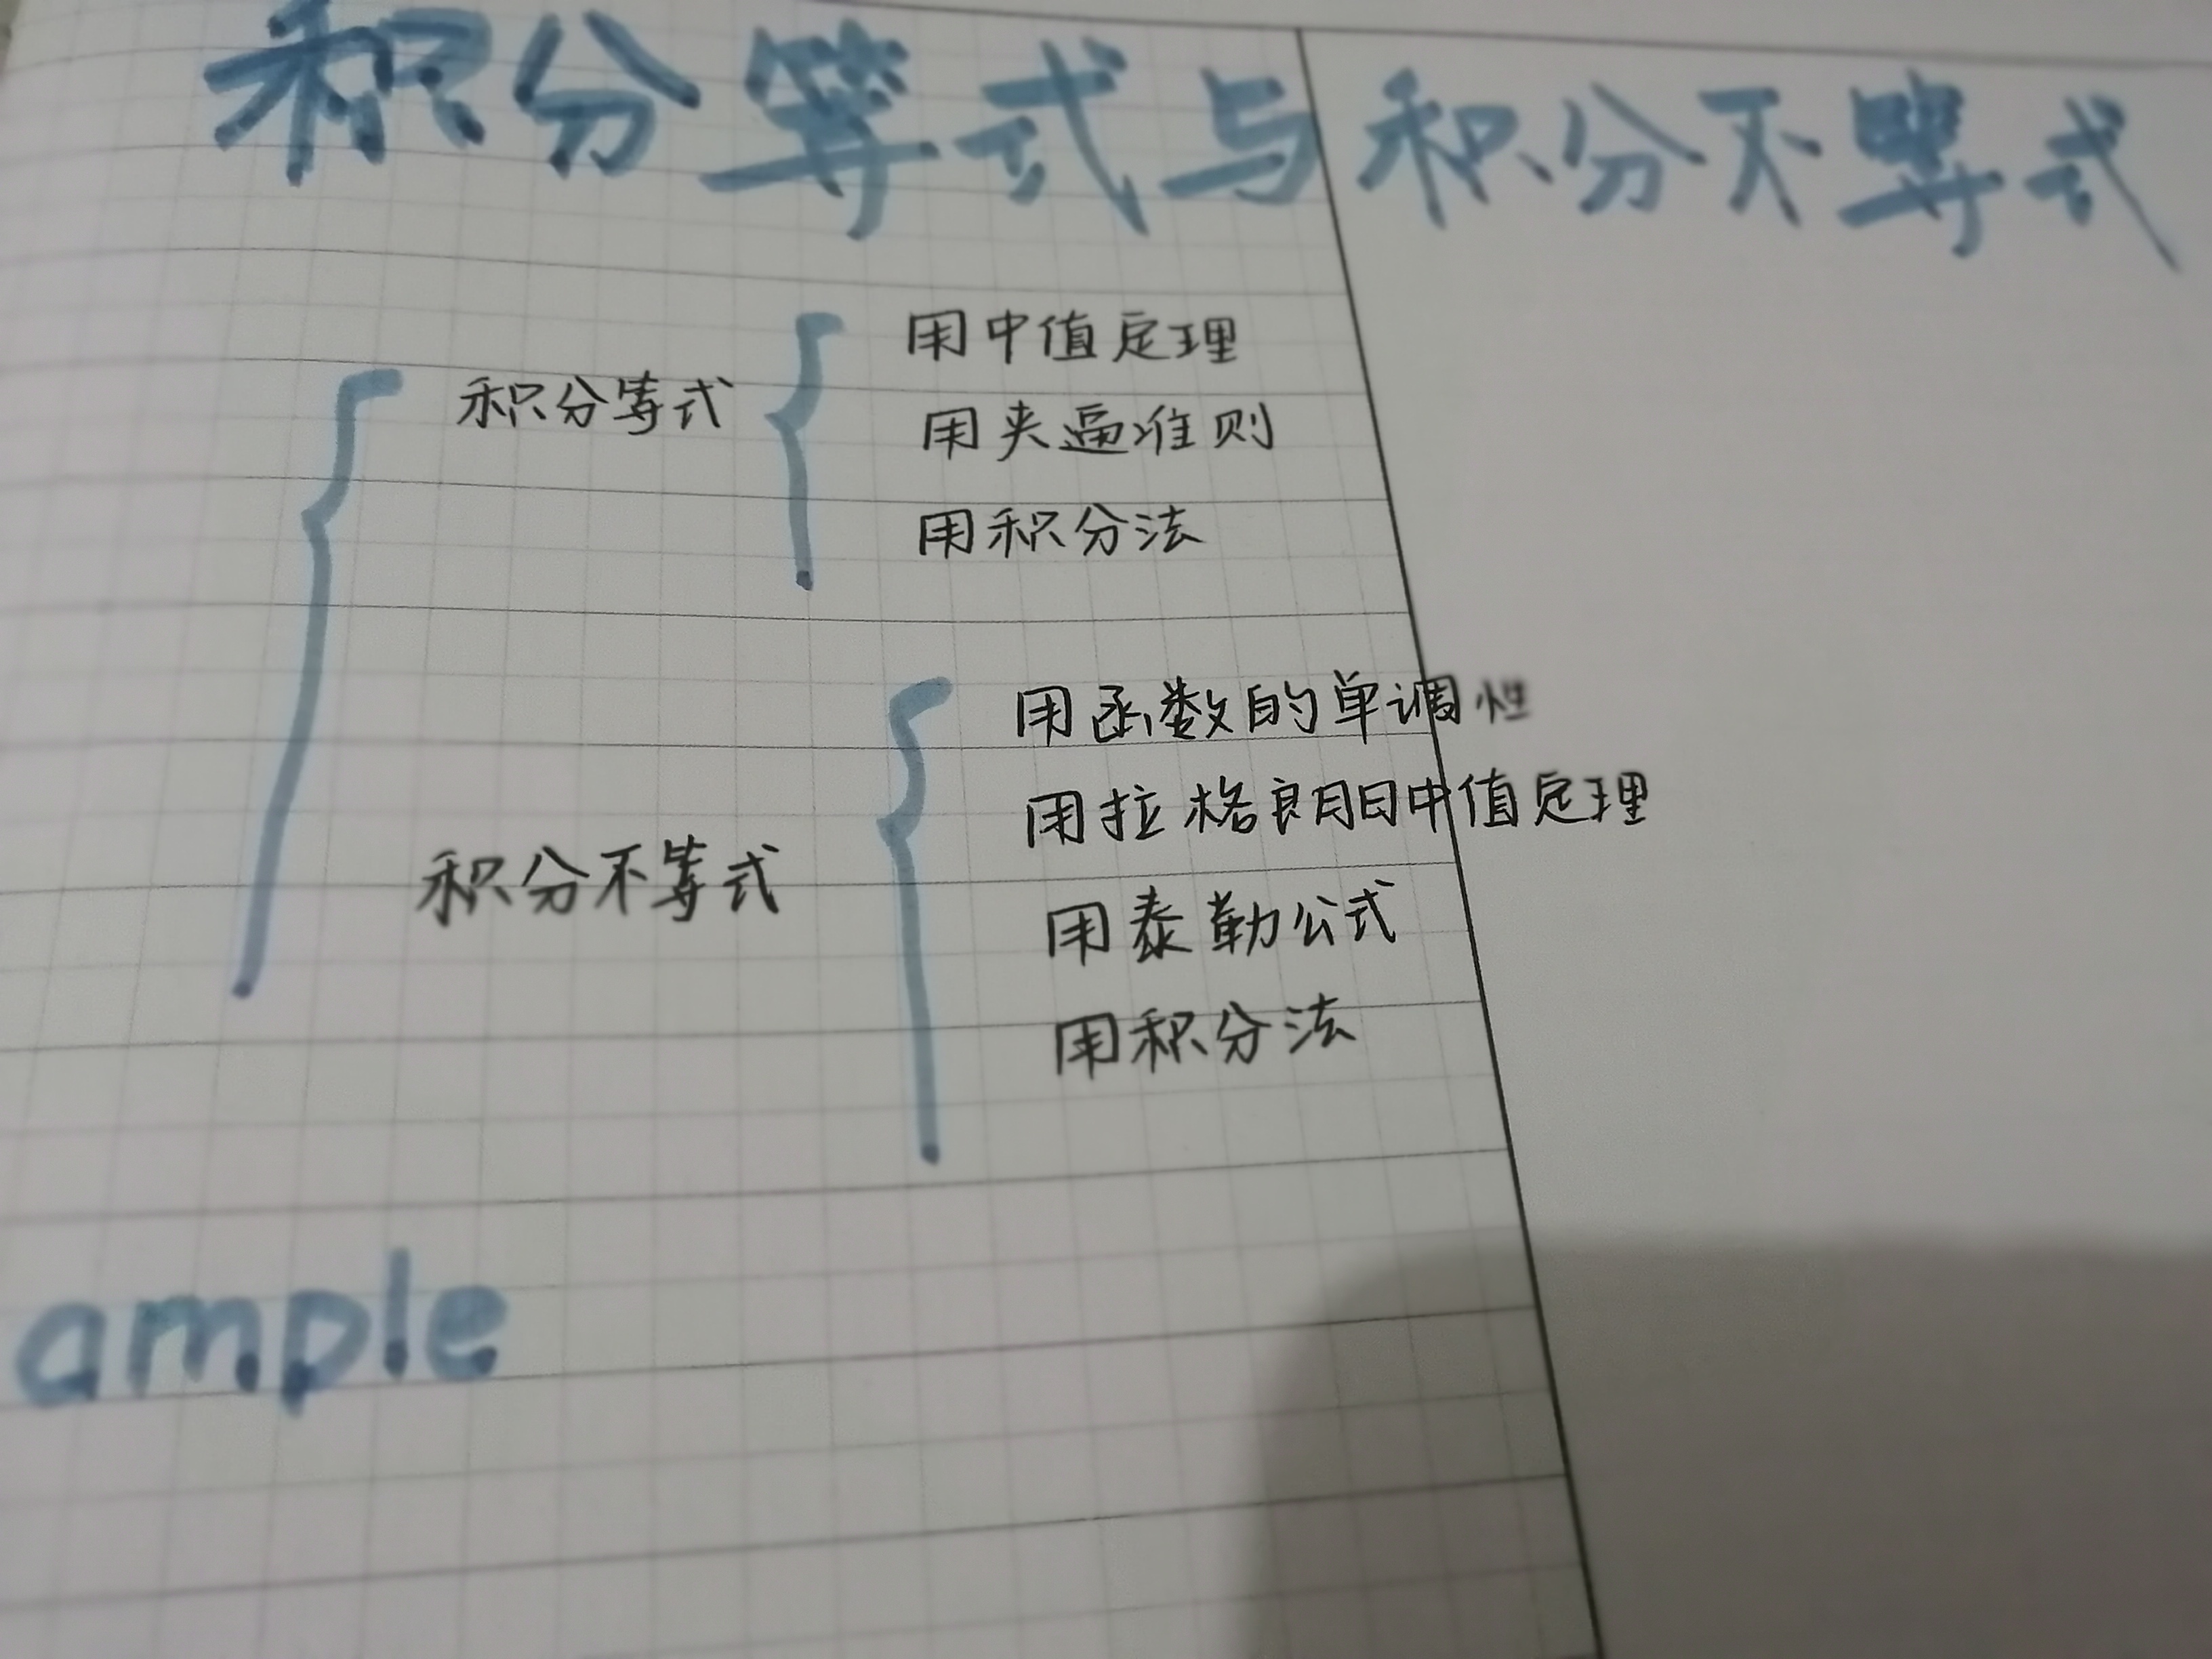 积分等式与积分不等式
积分等式
用中值定理
用夹逼准则
用积分法
积分不等式
用函数的单调性
用拉格朗日中值定理
用泰勒公式
用积分法
ample